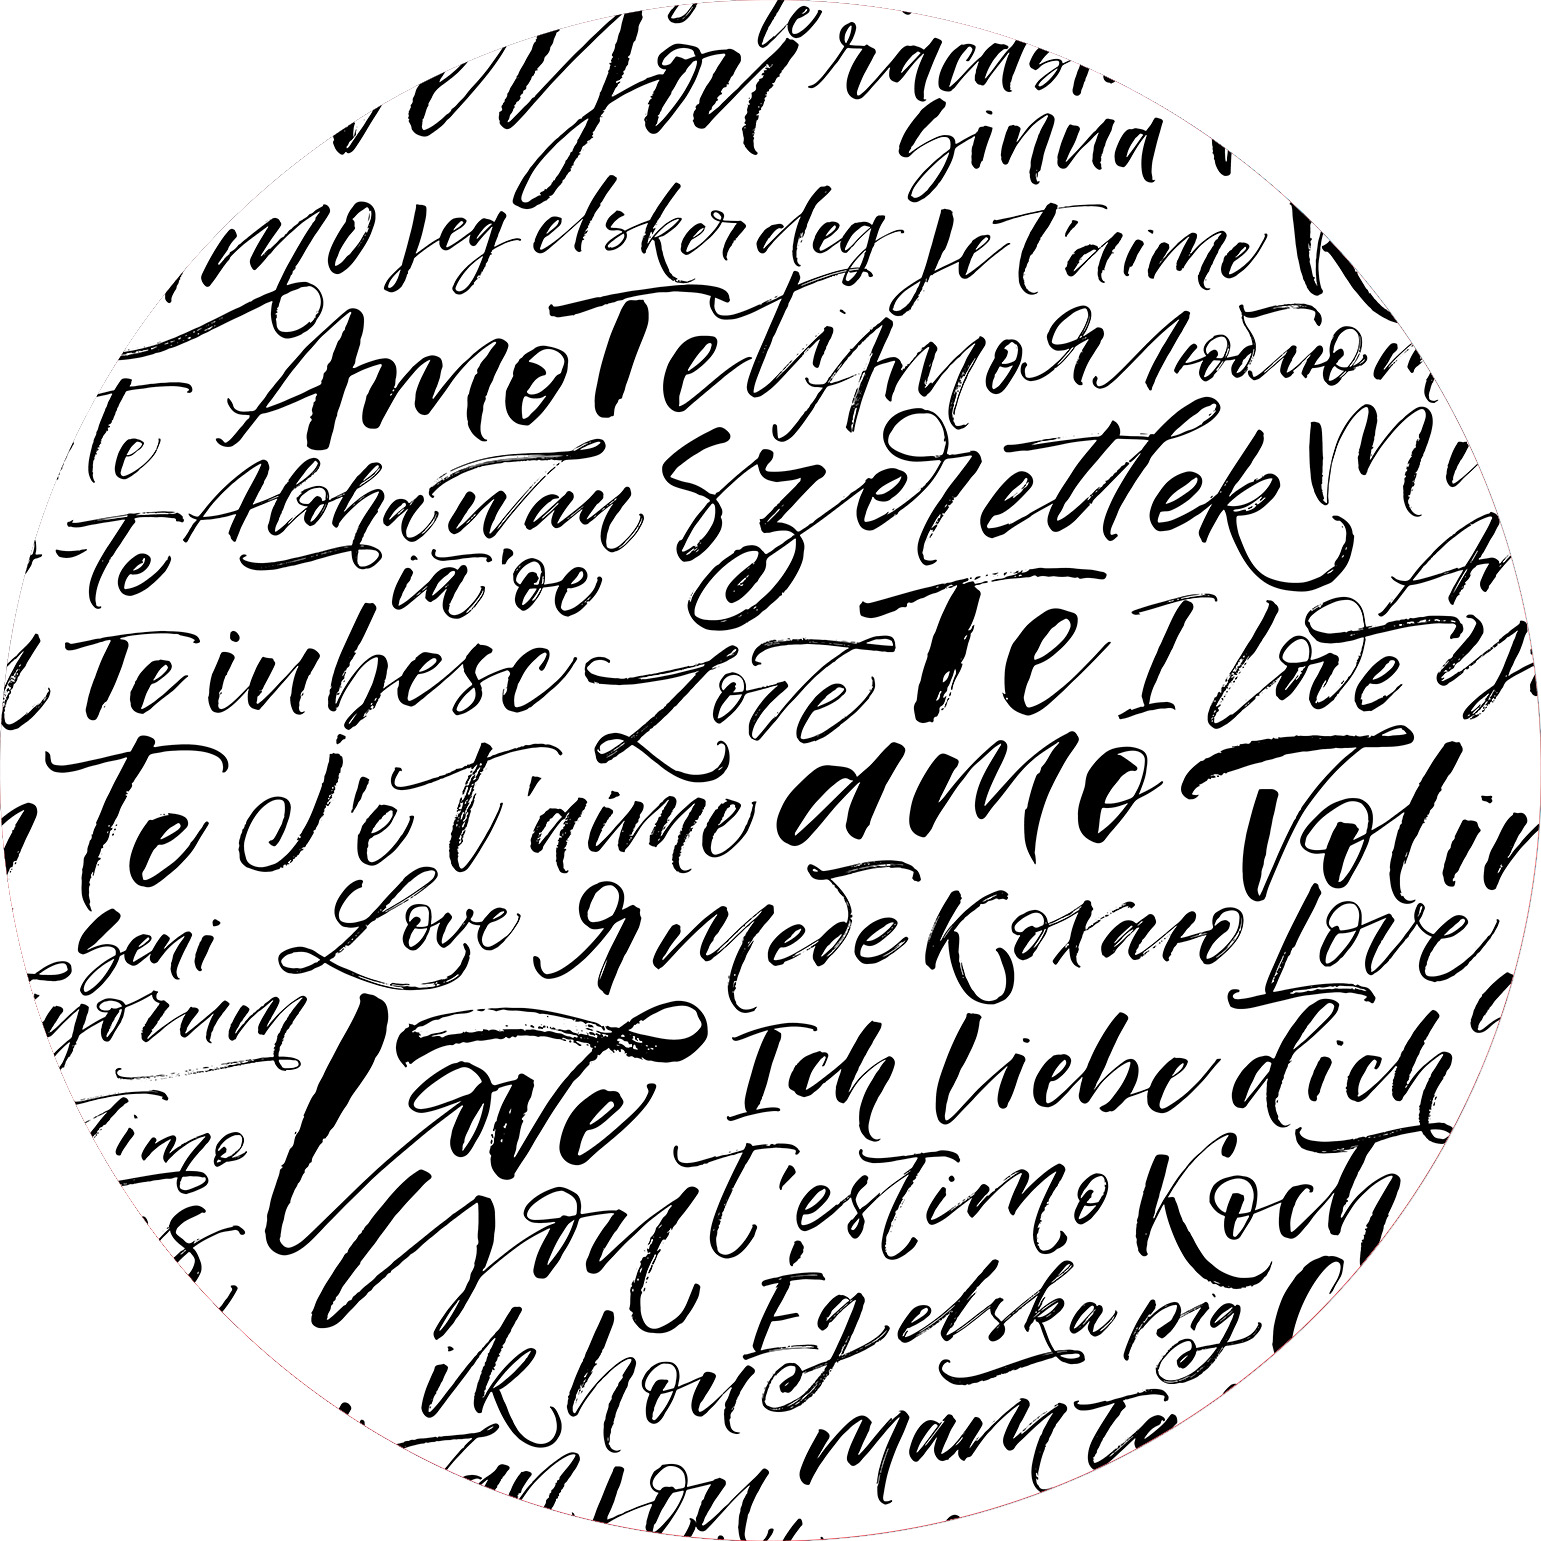 You
te
sinua
Jeg elsker deg
Je t'aime
Amo Te
ti Amo
Я люблю
Te
Aloha wau
ia 'oe
szeretlek
-Te
Te iubesc
Love
Te
amo
I love
Te
J'e t'aime
Volim
Love
Я тебе кохаю
Love
seni
Love
you
Ich liebe dich
T'estimo
timo
Koch
Ég elska þig
ik hou
mam ta
van jou